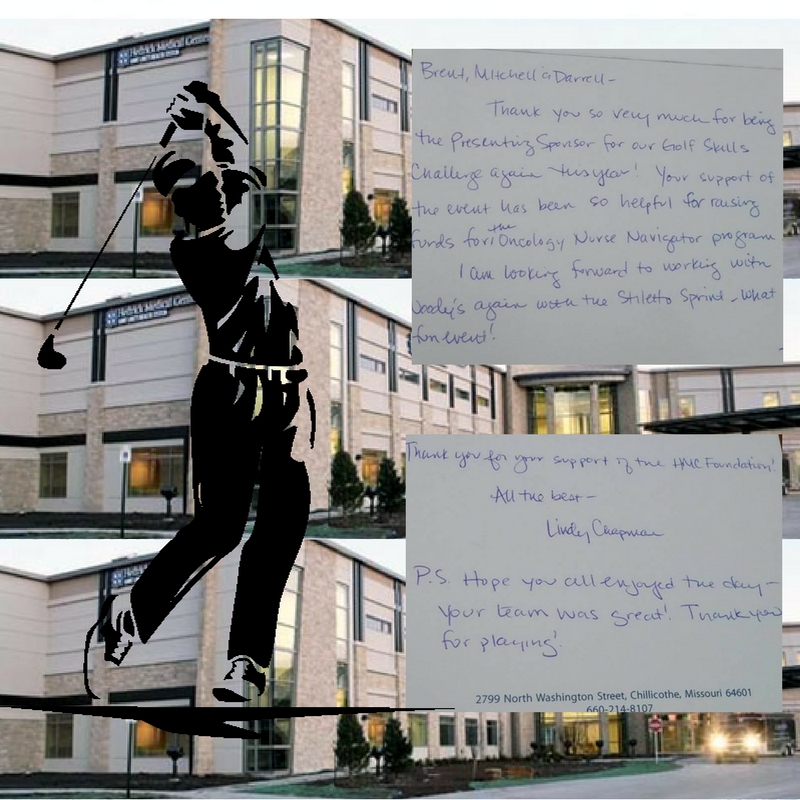 Hedrick Medical Center
Brent, Mitchell & Darrell-
Thank you so very much for being
the Presenting Sponsor for our Golf Skills
Challenge again this year! Your support of
the event has been so helpful for raising
funds for the Oncology Nurse Navigator program
I am looking forward to working with
Woody's again with the Stiletto Sprint - what
fun event!
Hedrick Medical Center
Thank you for your support of the HMC Foundation!
All the best-
Lindy Chapman
P.S. Hope you all enjoyed the day-
your team was great! Thank you
for playing!
2799 North Washington Street, Chillicothe, Missouri 64601
660-214-8107